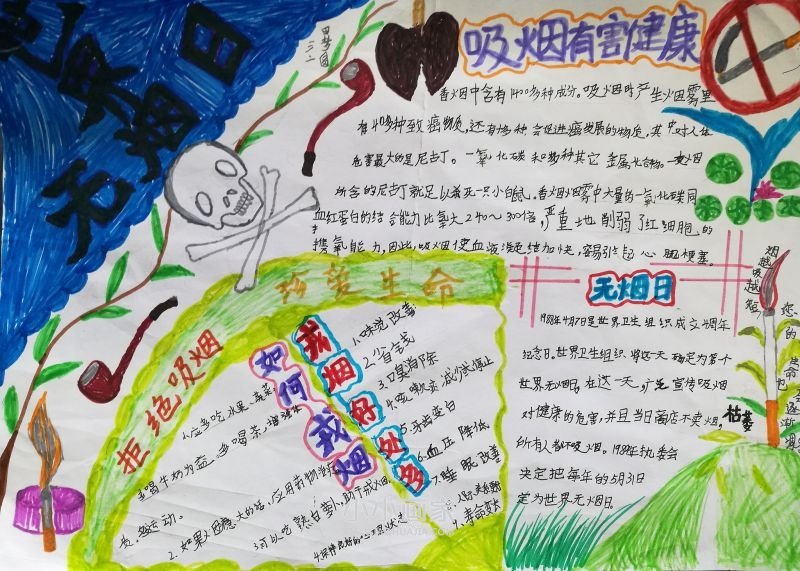 世界
无烟日
三二
吸烟有害健康
香烟中含有1400多种成分。吸烟时产生烟雾里
有40多种致癌物质,还有多种会促进癌发展的物质,其中对人体
危害最大的是尼古丁。一氧化碳和多种其它金属化合物。一支烟
所含的尼古丁就足以杀死一只小白鼠。香烟烟雾中大量的一氧化碳同
血红蛋白的结合能力比氧大240~300倍,严重地削弱了红细胞的
携氧能力,因此,吸烟使血液凝结加快,容易引起心脑梗塞。
珍爱生命
拒绝吸烟
如何戒烟
1.应多吃水果、蔬菜
多喝牛奶为益,多喝茶,增强体
质,多运动。
2.如果
3.可以吃
戒烟好处多
1.味觉改善
2.省钱
3.口臭消除
4.咳嗽减少或停止
5.牙齿变白
6.血压降低
7.睡眠改善
9.寿命变长
无烟日
1988年4月7日是世界卫生组织成立40周年
纪念日。世界卫生组织将这一天确定为第一个
世界无烟日,在这一天,广泛宣传吸烟
对健康的危害,并且当日商店不卖烟,
所有人都不吸烟。1989年执委会
决定把每年的5月31日
定为世界无烟日。
烟越吸越短
您的生命也逐渐
枯萎